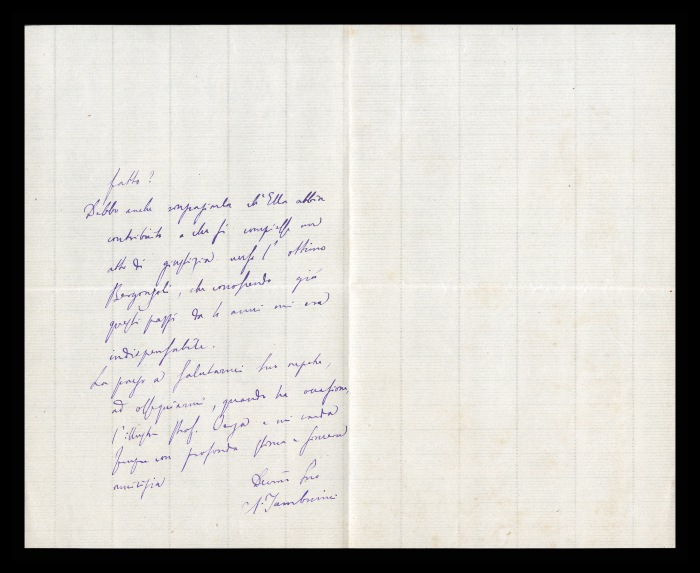 fatto?
Debbo anche ch'Ella abbia
contribuito a che si compiesse un
atto di giustizia verso l'ottimo
che conoscendo già
questi passi da anni mi era
indispensabile.
La prego a salutarmi suo
ad ossequiarmi, quando ha occasione,
l'illustre Prof. e mi creda
sempre con profonda stima e sincera
amicizia
Devmo Suo
A. Tamburini